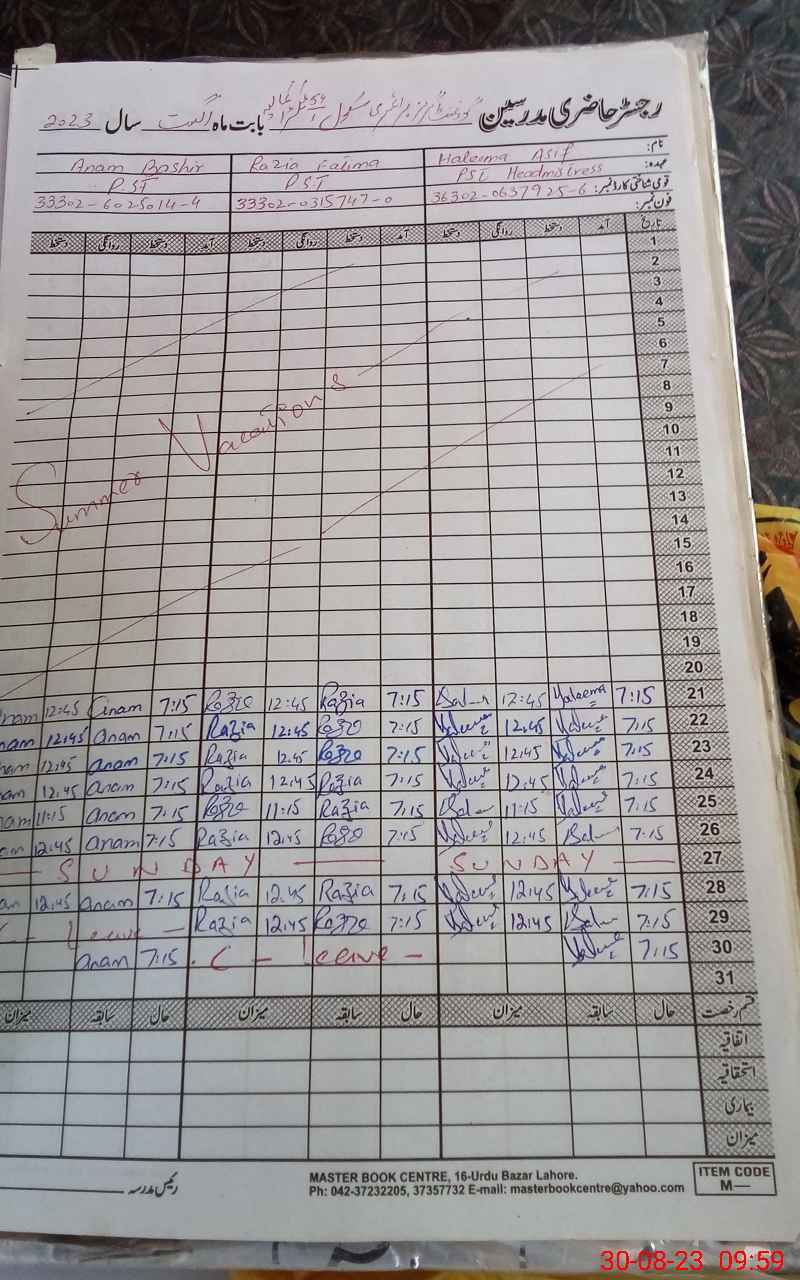 رجسٹر حاضری مدرسین گورنمنٹ گرلز پرائمری سکول بابت ماہ اگست سال 2023
نام: Haleema Asif Razia Fatima Anam Bashir
عہدہ: PST Headmistress PST PST
قومی شناختی کارڈ نمبر: 36302-0637925-6 33302-0315747-0 33302-6025014-4
فون نمبر:
تاریخ آمد دستخط روانگی دستخط آمد دستخط روانگی دستخط آمد دستخط روانگی دستخط
1
2
3
4
5
6
7
8
9
10
11
12
13
14
15
16
17
18
19
20
Summer Vacations
21 7:15 Haleema 12:45 7:15 Razia 12:45 7:15 Anam 12:45 Anam
22 7:15 12:45 7:15 12:45 Razia 7:15 Anam 12:45
23 7:15 12:45 7:15 12:45 Razia 7:15 Anam 12:45
24 7:15 12:45 7:15 Razia 12:45 Razia 7:15 Anam 12:45
25 7:15 11:15 7:15 Razia 11:15 7:15 Anam 11:15
26 7:15 12:45 7:15 12:45 Razia 7:15 Anam 12:45
27 SUNDAY SUNDAY
28 7:15 12:45 7:15 Razia 12:45 Razia 7:15 Anam 12:45
29 7:15 12:45 7:15 12:45 Razia C - Leave -
30 7:15 C - leave - 7:15 Anam
31
قسم رخصت حال سابقہ میزان حال سابقہ میزان حال سابقہ میزان
اتفاقیہ
استحقاقیہ
بیماری
میزان
رئیس مدرسہ
MASTER BOOK CENTRE, 16-Urdu Bazar Lahore.
Ph: 042-37232205, 37357732 E-mail: masterbookcentre@yahoo.com
ITEM CODE
M—
30-08-23 09:59